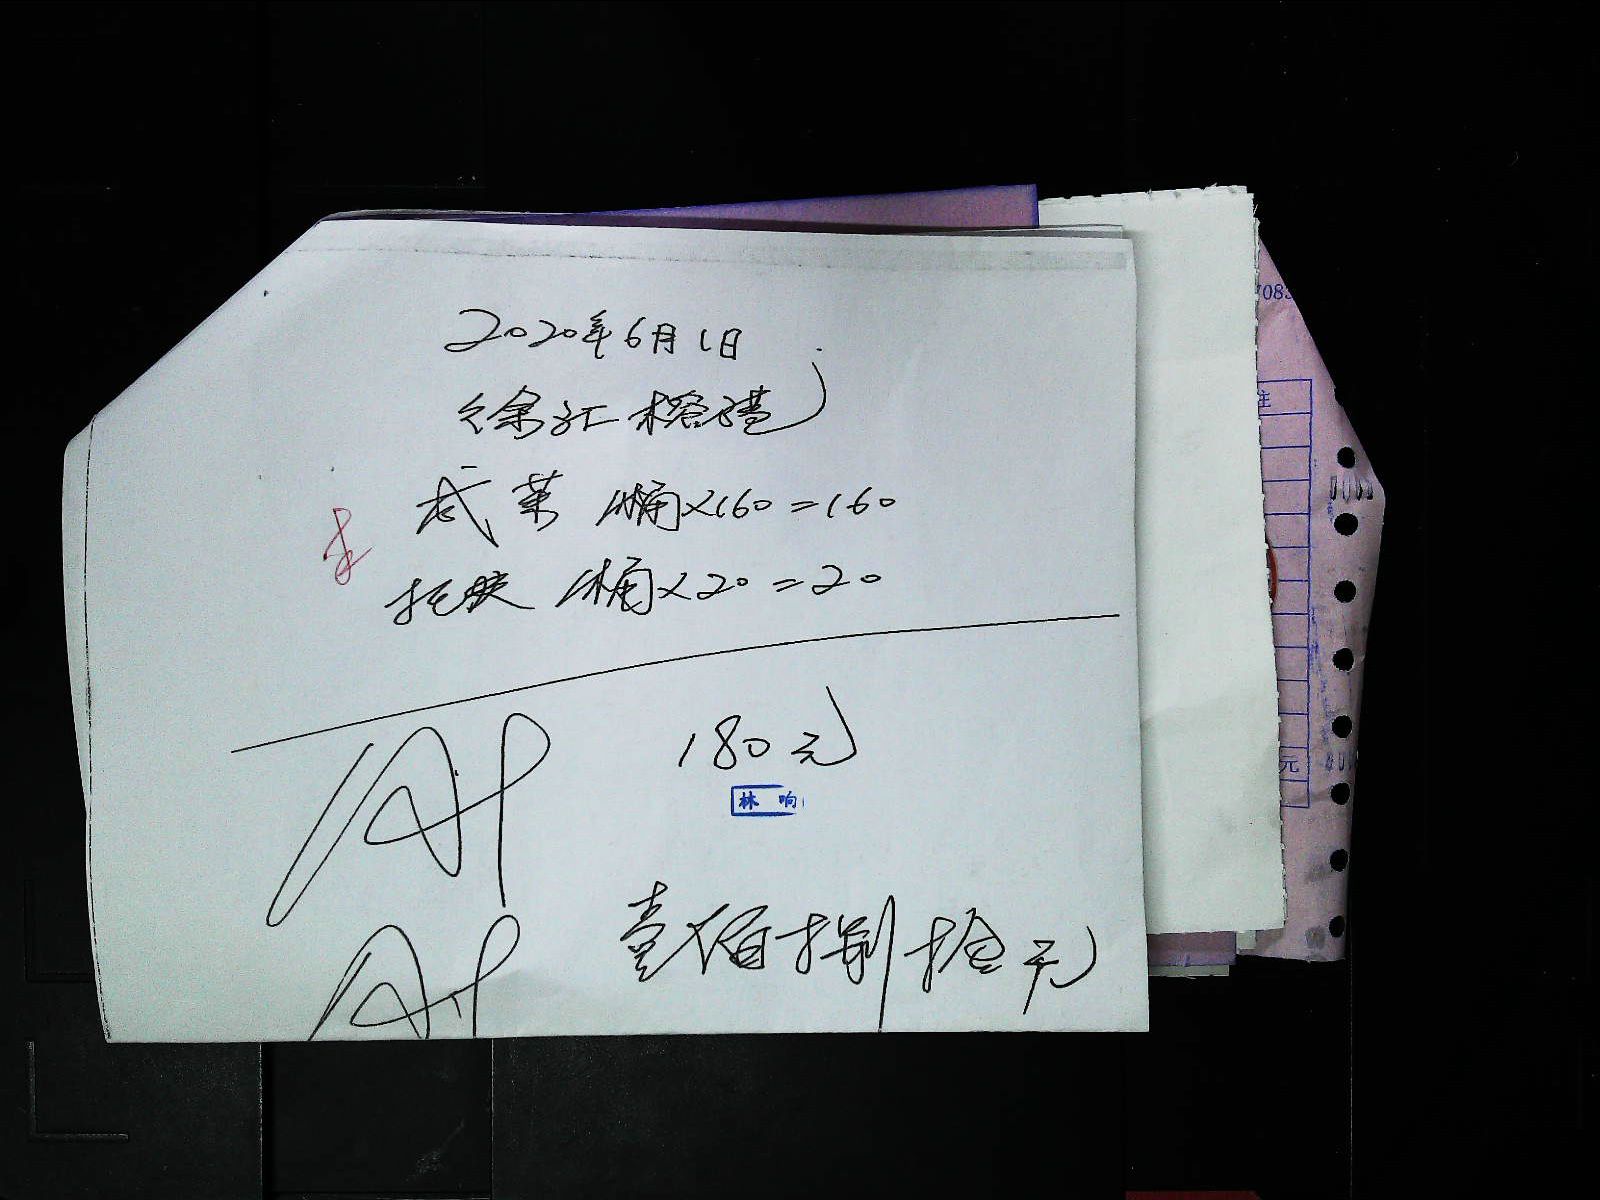 2020年6月1日
徐汇榕港
武莱 1桶×160=160
托胶 1桶×20=20
180元
林 响
壹佰捌拾元
注
元